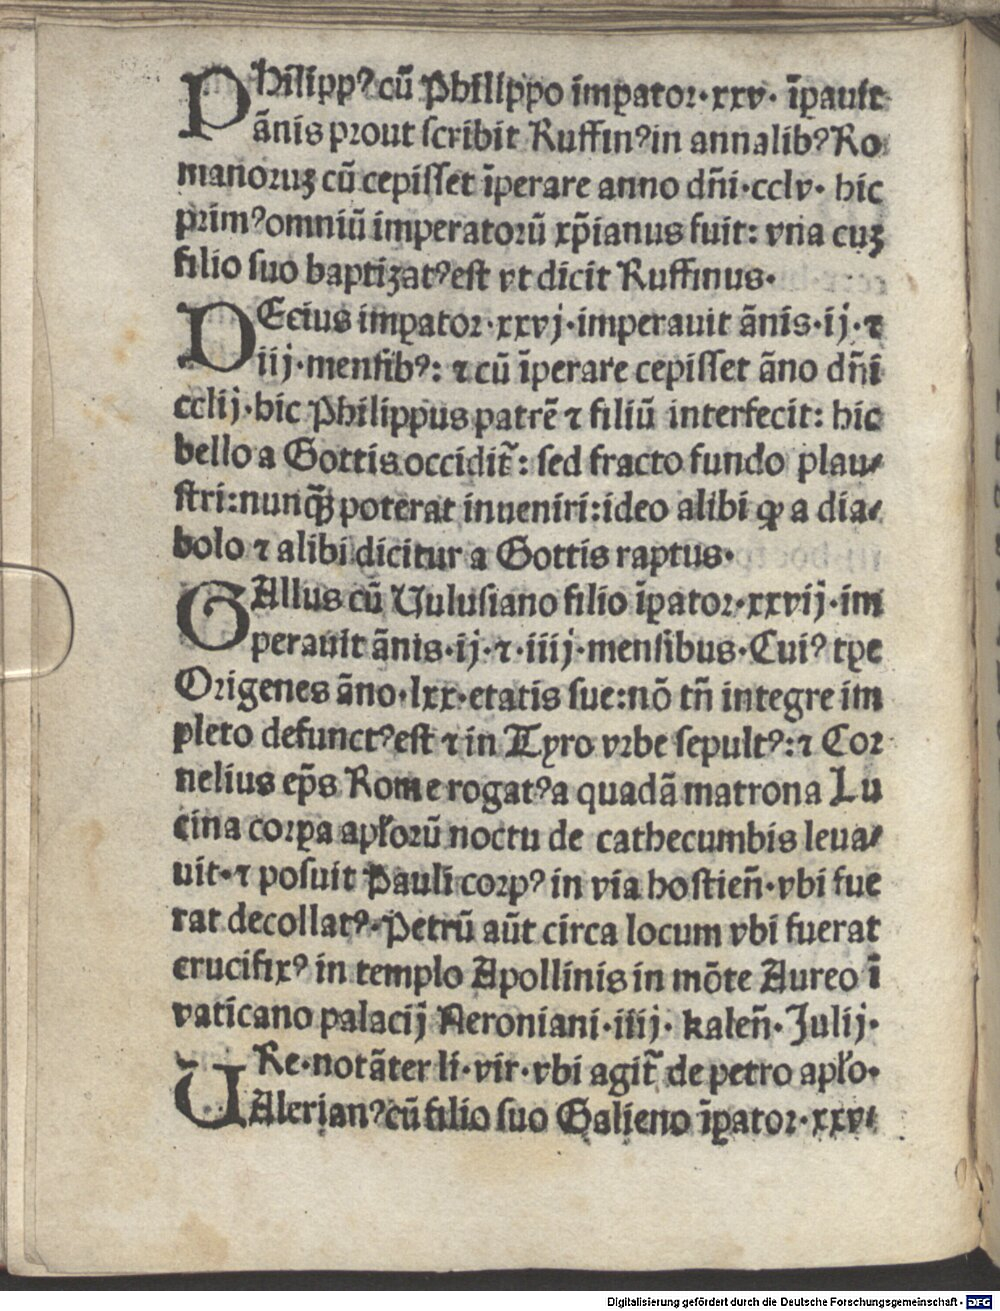 Philippꝰ cū Philippo imꝑator·xxv· īꝑauit
ānis prout scribit Ruffinꝰ in annalibꝰ Ro
manoruꝫ cū cepisset īperare anno dn̄i·cclv· hic
primꝰ omniū imperatorū xp̄ianus fuit: vna cuꝫ
filio suo baptizatꝰ est vt dicit Ruffinus·
DEcius imꝑator·xxvj·imperauit ānis·ij·⁊
iij·mensibꝰ: ⁊ cū īperare cepisset āno dn̄i
cclij·hic Philippus patrē ⁊ filiū interfecit: hic
bello a Gottis occidit̄: sed fracto fundo plau⸗
stri:nunqꝫ̄ poterat inueniri:ideo alibi ꝙ a dia⸗
bolo ⁊ alibi dicitur a Gottis raptus·
GAllus cū Uulusiano filio īꝑator·xxvij·im
perauit ānis·ij·⁊·iiij·mensibus·Cuiꝰ tꝑe
Origenes āno·lxx·etatis sue:nō tn̄ integre im
pleto defunctꝰ est ⁊ in Tyro vrbe sepultꝰ:⁊ Cor
nelius ep̄s Rome rogatꝰ a quadā matrona Lu
cina corꝑa apl̄orū noctu de cathecumbis leua⸗
uit·⁊ posuit Pauli corpꝰ in via hostien̄·vbi fue
rat decollatꝰ·Petrū aūt circa locum vbi fuerat
crucifixꝰ in templo Apollinis in mōte Aureo ī
vaticano palacij Neroniani·iiij· kalen̄·Julij·
Re·notāter li·vir·vbi agit̄ de petro apl̄o·
UAlerianꝰ cū filio suo Galieno īꝑator·xxv⸗
Digitalisierung gefördert durch die Deutsche Forschungsgemeinschaft - DFG